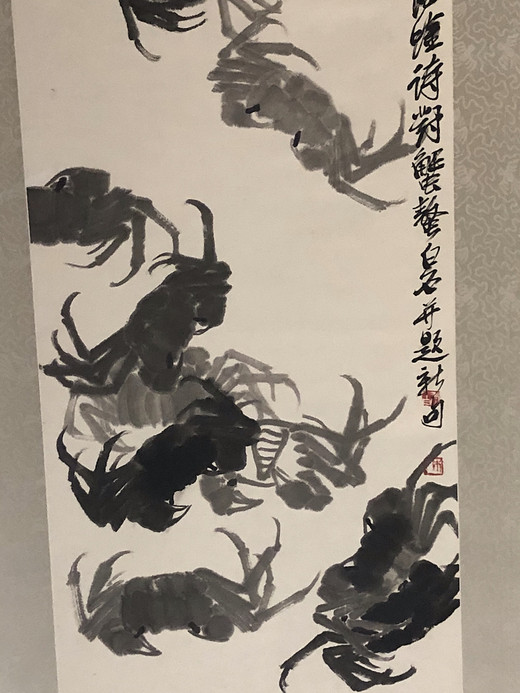 詩對蟹螯白石并題新句